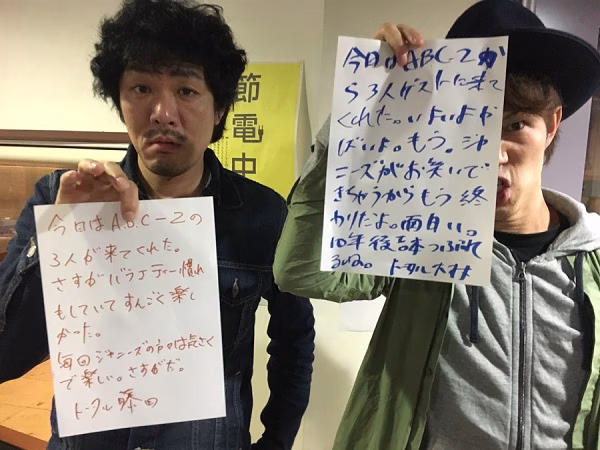 今日はA.B.C-Zの
3人が来てくれた。
さすがバラエティー慣れ
もしていてすんごく楽し
かった。
毎回ジャニーズの方々は気さく
で楽しい。さすがだ。
トータル藤田
節電中
今日はABC-Zか
ら3人ゲストに来て
くれた。いよいよや
ばいよ。もう。ジャ
ニーズがお笑いで
きちゃうからもう終
わりだよ。面白い。
10年後吉本つぶれて
るなみ。トータル大村